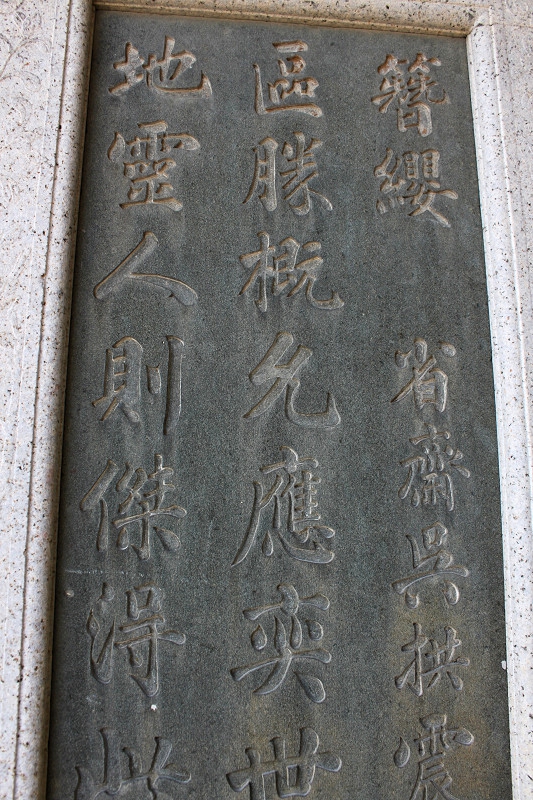 地靈人則傑得此
區勝概允應奕世
簪纓 省齋吳拱震